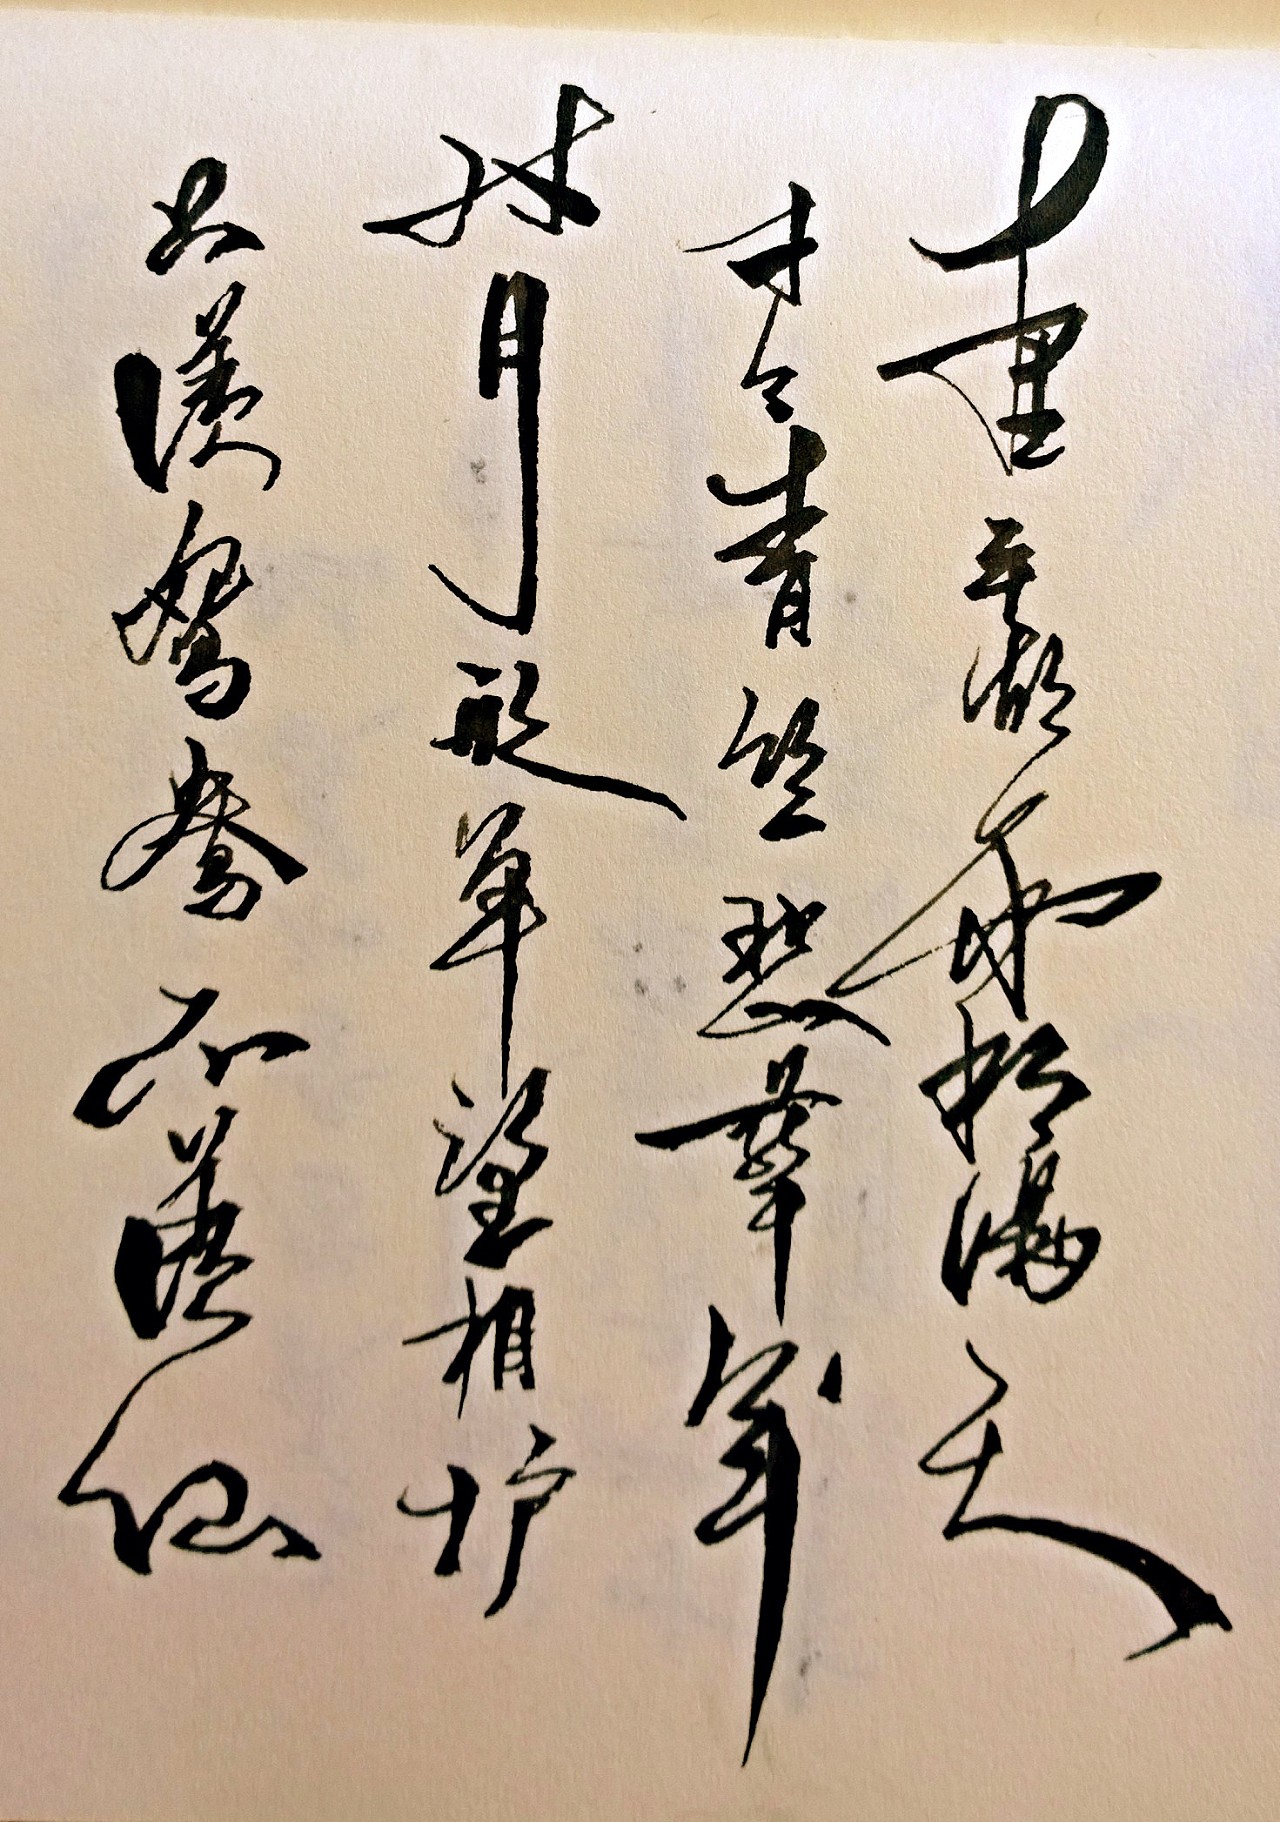 十里平湖霜满天
寸々青丝愁華年
对月形单望相护
只羡鸳鸯不羡仙